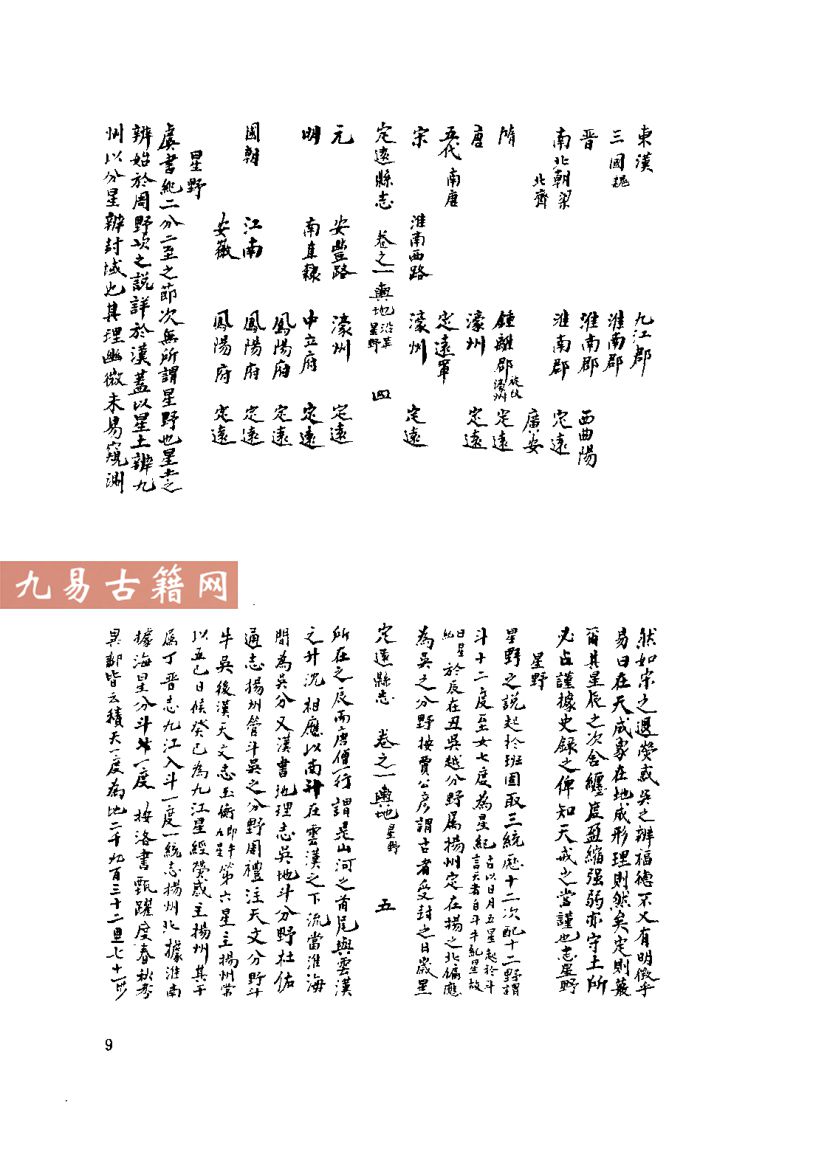 東漢 九江郡
三國魏 淮南郡
晉 淮南郡 西曲陽
南北朝梁 淮南郡 定遠
北齊 廣安
隋 鍾離郡 濠州 定遠
唐 濠州 定遠
五代 南唐 定遠軍
宋 淮南西路 濠州 定遠
定遠縣志 卷之一 輿地 沿革 星野 四
元 安豐路 濠州 定遠
明 南直隸 中立府 定遠
鳳陽府 定遠
國朝 江南 鳳陽府 定遠
安徽 鳳陽府 定遠
星野
虞書紀二分二至之節次無所謂星野也星土之
辨始於周野次之說詳於漢蓋以星土辨九
州以分星辨封域也其理幽微未易窺測
九易古籍网
然如宋之退熒惑吳之辨福德不又有明徵乎
易曰在天成象在地成形理則然矣定則蕞
爾其星辰之次舍纏度盈縮强弱亦守土所
必占謹據史錄之俾知天戒之當謹也志星野
星野
星野之說起於班固取三統歷十二次配十二野謂
斗十二度至女七度為星紀 古以日月五星起於斗
言天者自斗牛紀星故
曰星紀 於辰在丑吳越分野屬揚州定在揚之北偏應
為吳之分野按賈公彥謂古者受封之日歲星
定遠縣志 卷之一 輿地 星野 五
所在之辰而唐僧一行謂是山河之首尾與雲漢
之升沉相應以南斗在雲漢之下流當淮海
間為吳分又漢書地理志吳地斗分野杜佑
通志揚州管斗吳之分野周禮注天文分野斗
牛吳後漢天文志玉衡 第六星主揚州常
以五巳日候癸巳為九江星經熒惑主揚州其干
屬丁晉志九江入斗一度一統志揚州北據淮南
據海星分斗 一度 按洛書甄躍度春秋考
異郵皆云積天一度為地二千九百三十二里七十一步
9